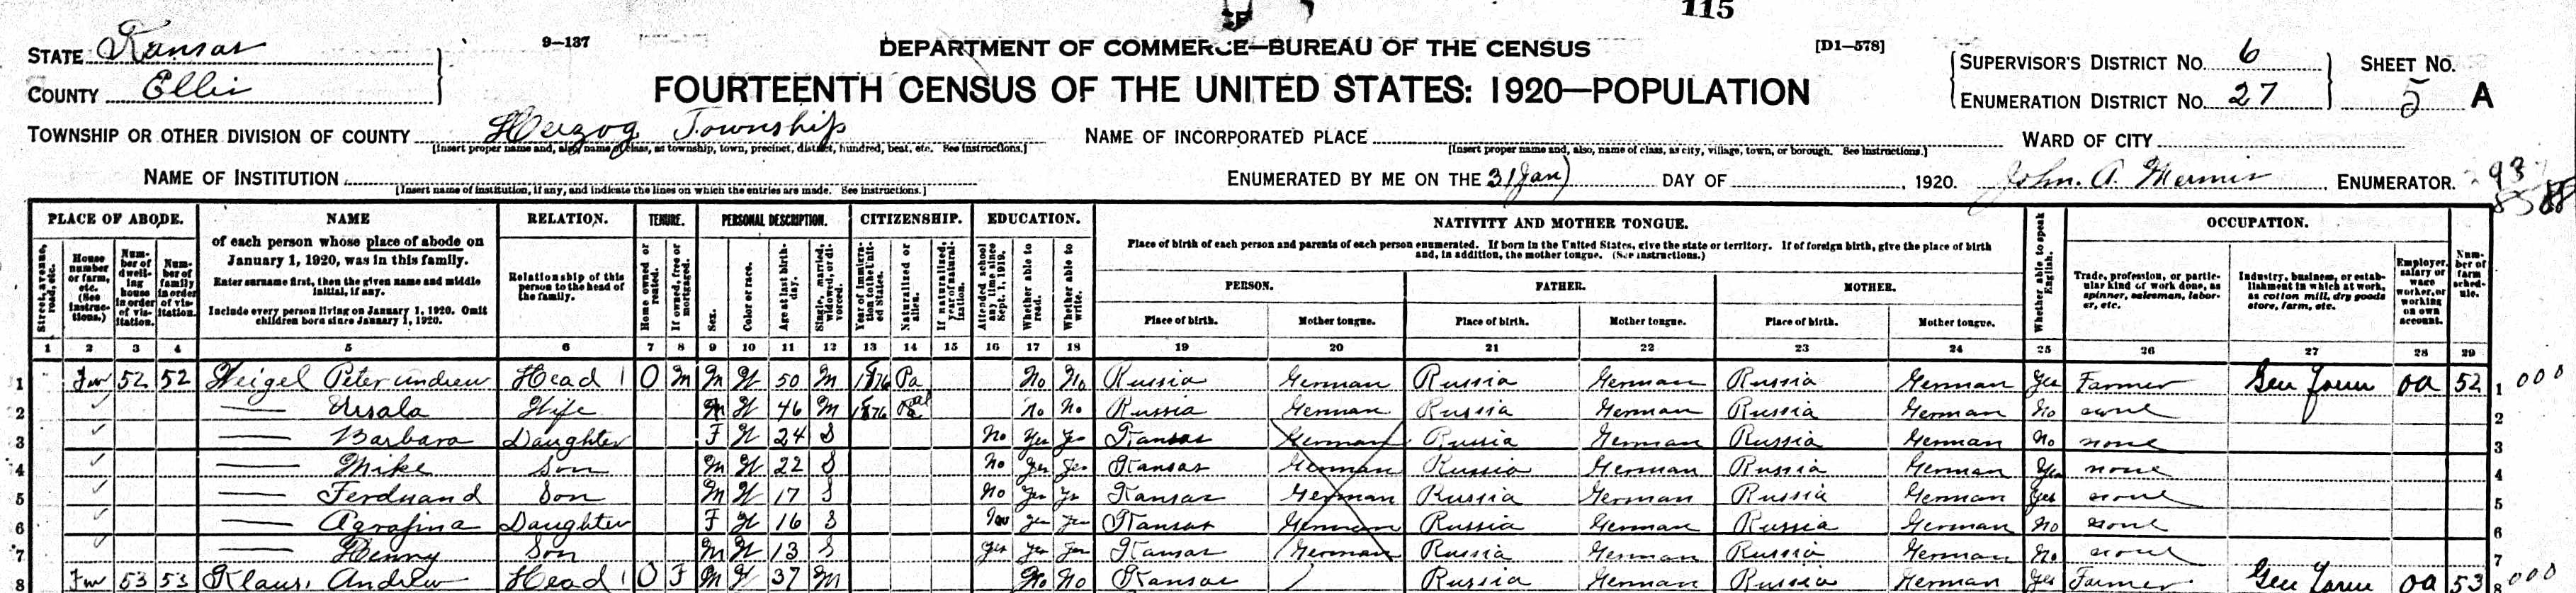 115
STATE Kansas
9—137
DEPARTMENT OF COMMERCE—BUREAU OF THE CENSUS
[D1—578]
COUNTY Ellis
FOURTEENTH CENSUS OF THE UNITED STATES: 1920—POPULATION
SUPERVISOR'S DISTRICT NO. 6
ENUMERATION DISTRICT NO. 27
SHEET NO. 5 A
TOWNSHIP OR OTHER DIVISION OF COUNTY Herzog Township
[Insert proper name and, also, name of class, as township, town, precinct, district, hundred, beat, etc. See instructions.]
NAME OF INCORPORATED PLACE
[Insert proper name and, also, name of class, as city, village, town, or borough. See instructions.]
WARD OF CITY
NAME OF INSTITUTION
[Insert name of institution, if any, and indicate the lines on which the entries are made. See instructions.]
ENUMERATED BY ME ON THE 31 (Jan) DAY OF , 1920. John. A. ENUMERATOR. 93
PLACE OF ABODE. NAME RELATION. TENURE. PERSONAL DESCRIPTION. CITIZENSHIP. EDUCATION. NATIVITY AND MOTHER TONGUE. OCCUPATION.
Street, avenue, road, etc.
House number or farm, etc. (See instructions.)
Number of dwelling house in order of visitation.
Number of family in order of visitation.
of each person whose place of abode on January 1, 1920, was in this family.
Enter surname first, then the given name and middle initial, if any.
Include every person living on January 1, 1920. Omit children born since January 1, 1920.
Relationship of this person to the head of the family.
Home owned or rented.
If owned, free or mortgaged.
Sex.
Color or race.
Age at last birthday.
Single, married, widowed, or divorced.
Year of immigration to the United States.
Naturalized or alien.
If naturalized, year of naturalization.
Attended school any time since Sept. 1, 1919.
Whether able to read.
Whether able to write.
Place of birth of each person and parents of each person enumerated. If born in the United States, give the state or territory. If of foreign birth, give the place of birth and, in addition, the mother tongue. (See instructions.)
PERSON. FATHER. MOTHER.
Place of birth. Mother tongue. Place of birth. Mother tongue. Place of birth. Mother tongue.
Whether able to speak English.
Trade, profession, or particular kind of work done, as spinner, salesman, laborer, etc.
Industry, business, or establishment in which at work, as cotton mill, dry goods store, farm, etc.
Employer, salary or wage worker, or working on own account.
Number of farm schedule.
1 2 3 4 5 6 7 8 9 10 11 12 13 14 15 16 17 18 19 20 21 22 23 24 25 26 27 28 29
1 Fm 52 52 Weigel Peter Andrew Head 1 O M M W 50 M 1876 Pa No No Russia German Russia German Russia German Yes Farmer Gen Farm OA 52 1 000
2 — Ursala Wife M W 46 M 1876 No No Russia German Russia German Russia German No none 2
3 — Barbara Daughter F W 24 S No Yes Yes Kansas German Russia German Russia German No none 3
4 — Mike Son M W 22 S No Yes Yes Kansas German Russia German Russia German Yes none 4
5 — Ferdnand Son M W 17 S No Yes Yes Kansas German Russia German Russia German Yes none 5
6 — Agrafina Daughter F W 16 S Yes Yes Kansas German Russia German Russia German No none 6
7 — Henny Son M W 13 S Yes Yes Yes Kansas German Russia German Russia German No none 7
8 Fm 53 53 Klaus, Andrew Head 1 O F M W 37 M No No Kansas Russia German Russia German Yes Farmer Gen Farm OA 53 8 000